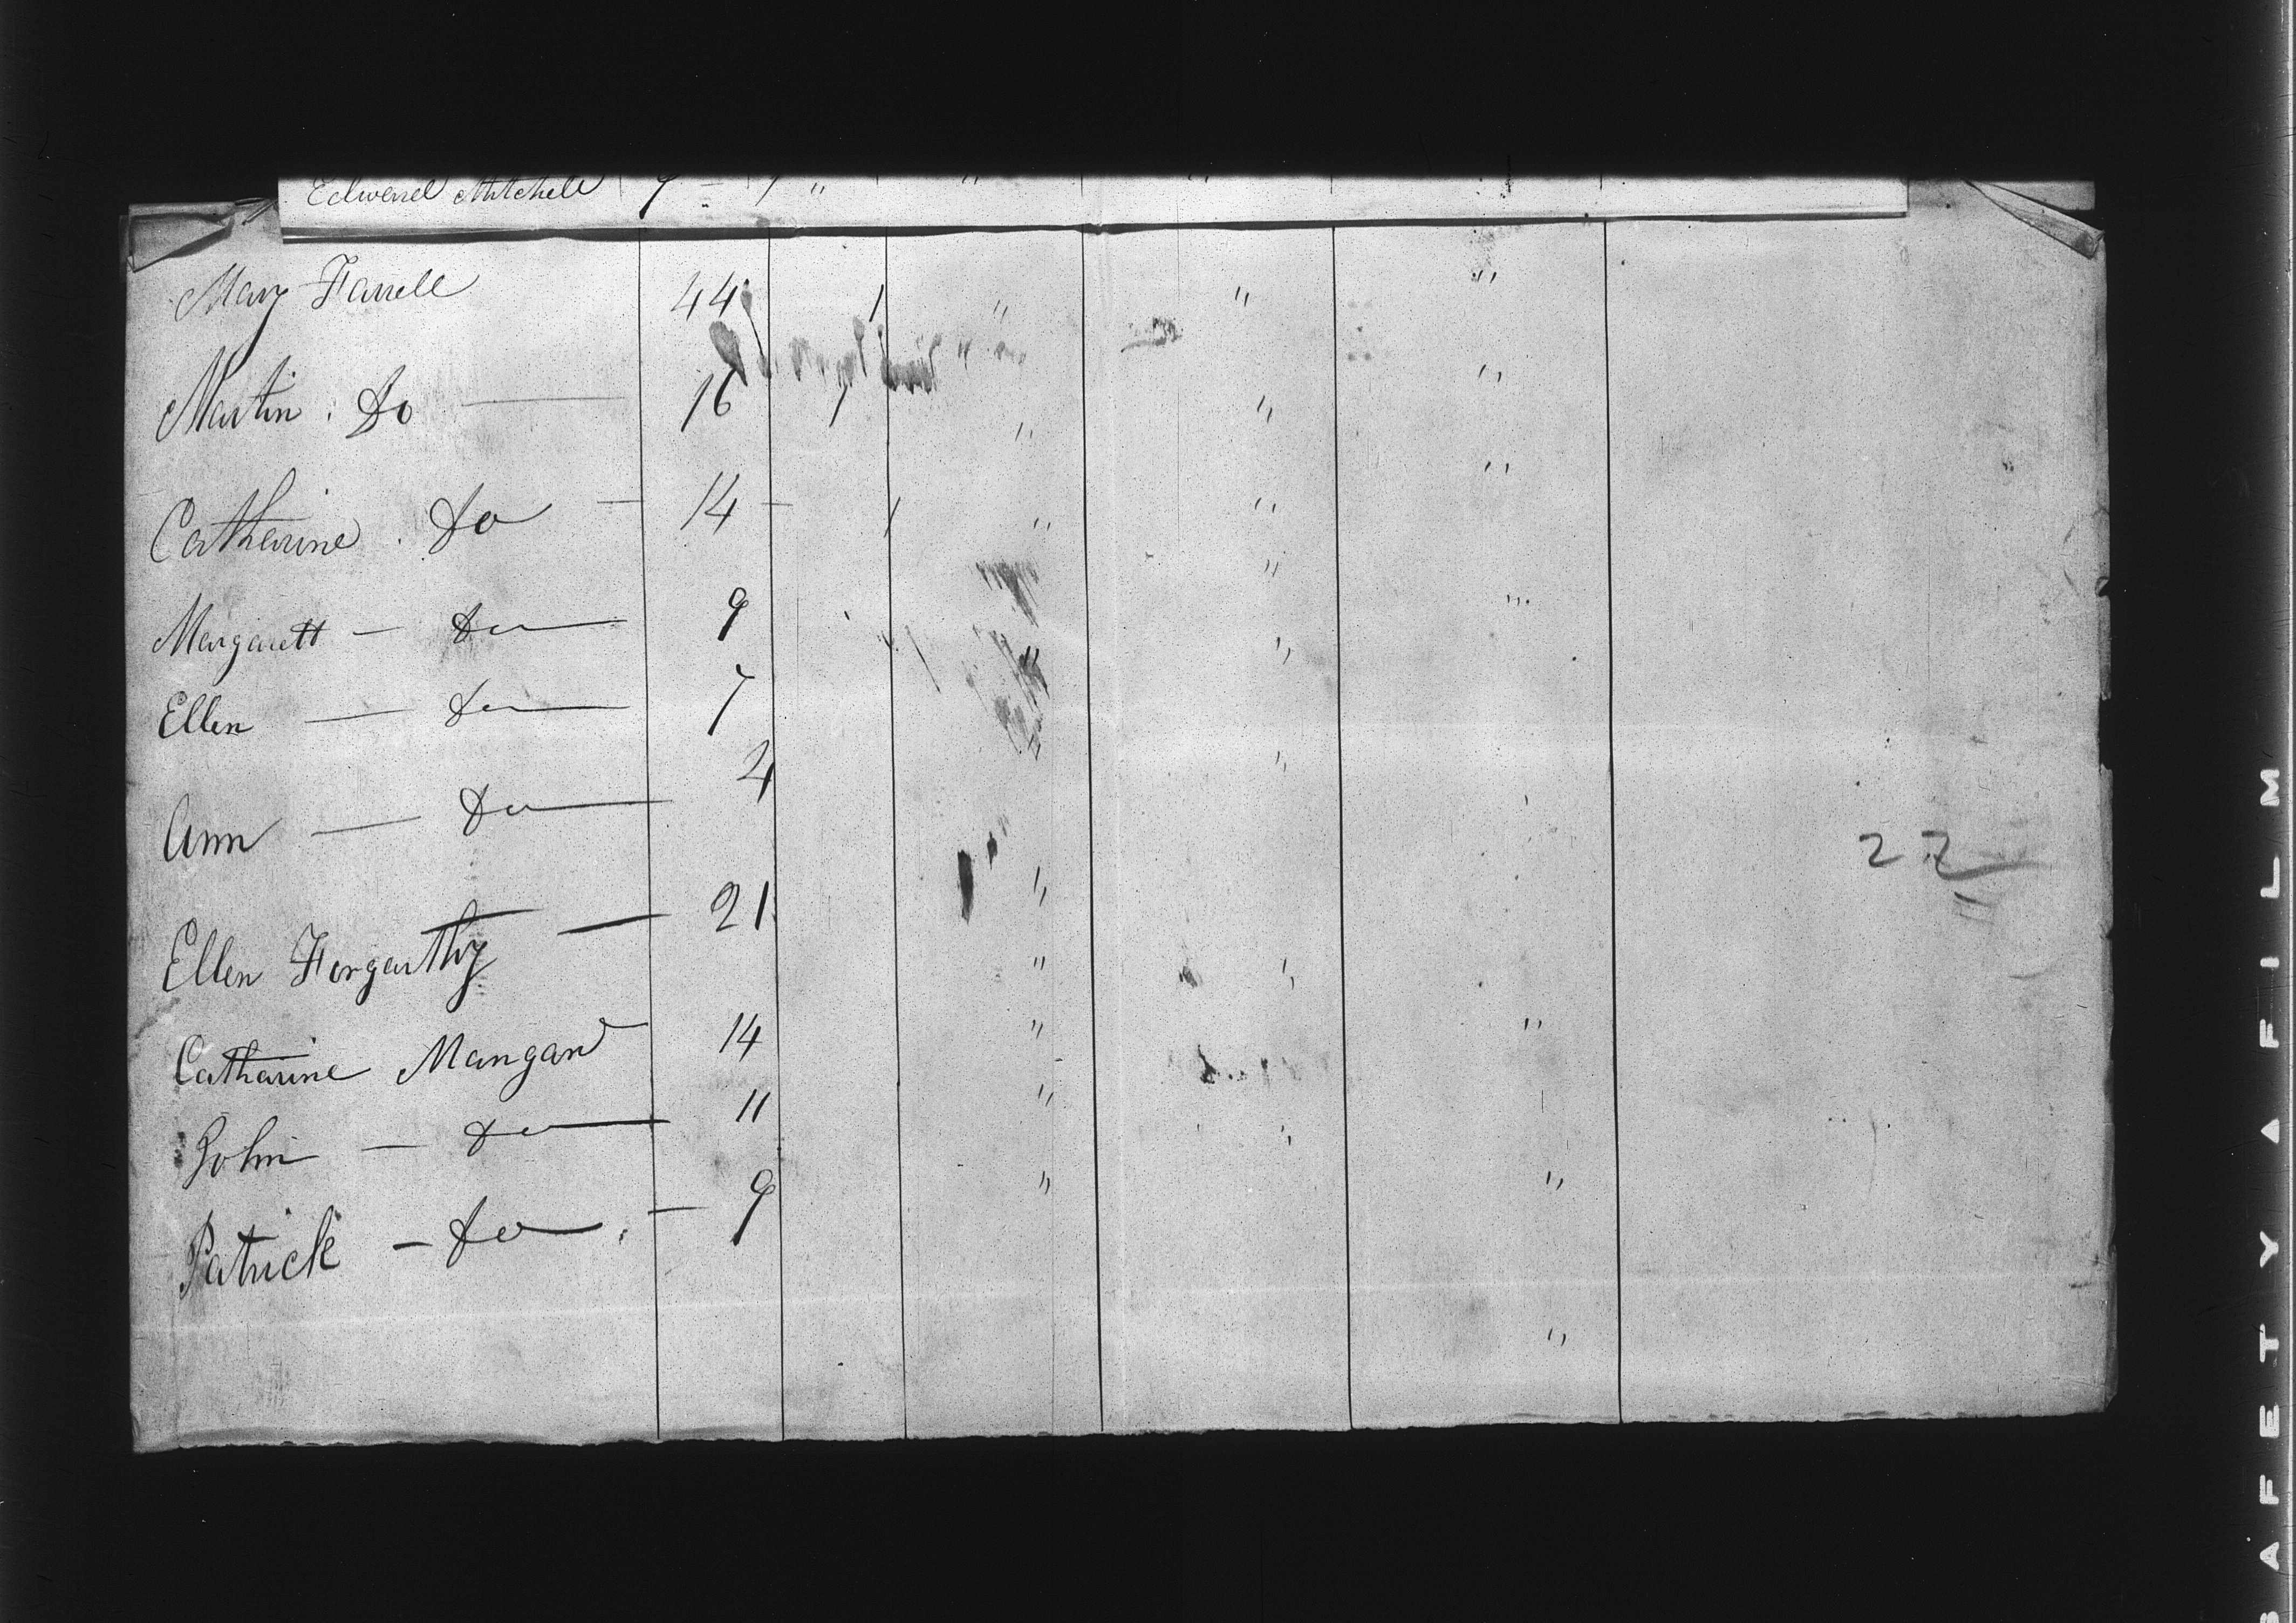 Edward Mitchell 9 - 1 " " "
Mary Farrell 44 1 " " "
Martin . Do — 16 1 " " "
Catharine . Do — 14 - 1 " " "
Margarett — Do — 9 " " "
Ellen — Do — 7 "
Ann — Do — 4 "
22
Ellen Forgarthy — 21 " "
Catharine Mangan 14 " "
John — Do — 11 " "
Patrick — Do . — 9 " "
"
SAFETY ▲ FILM